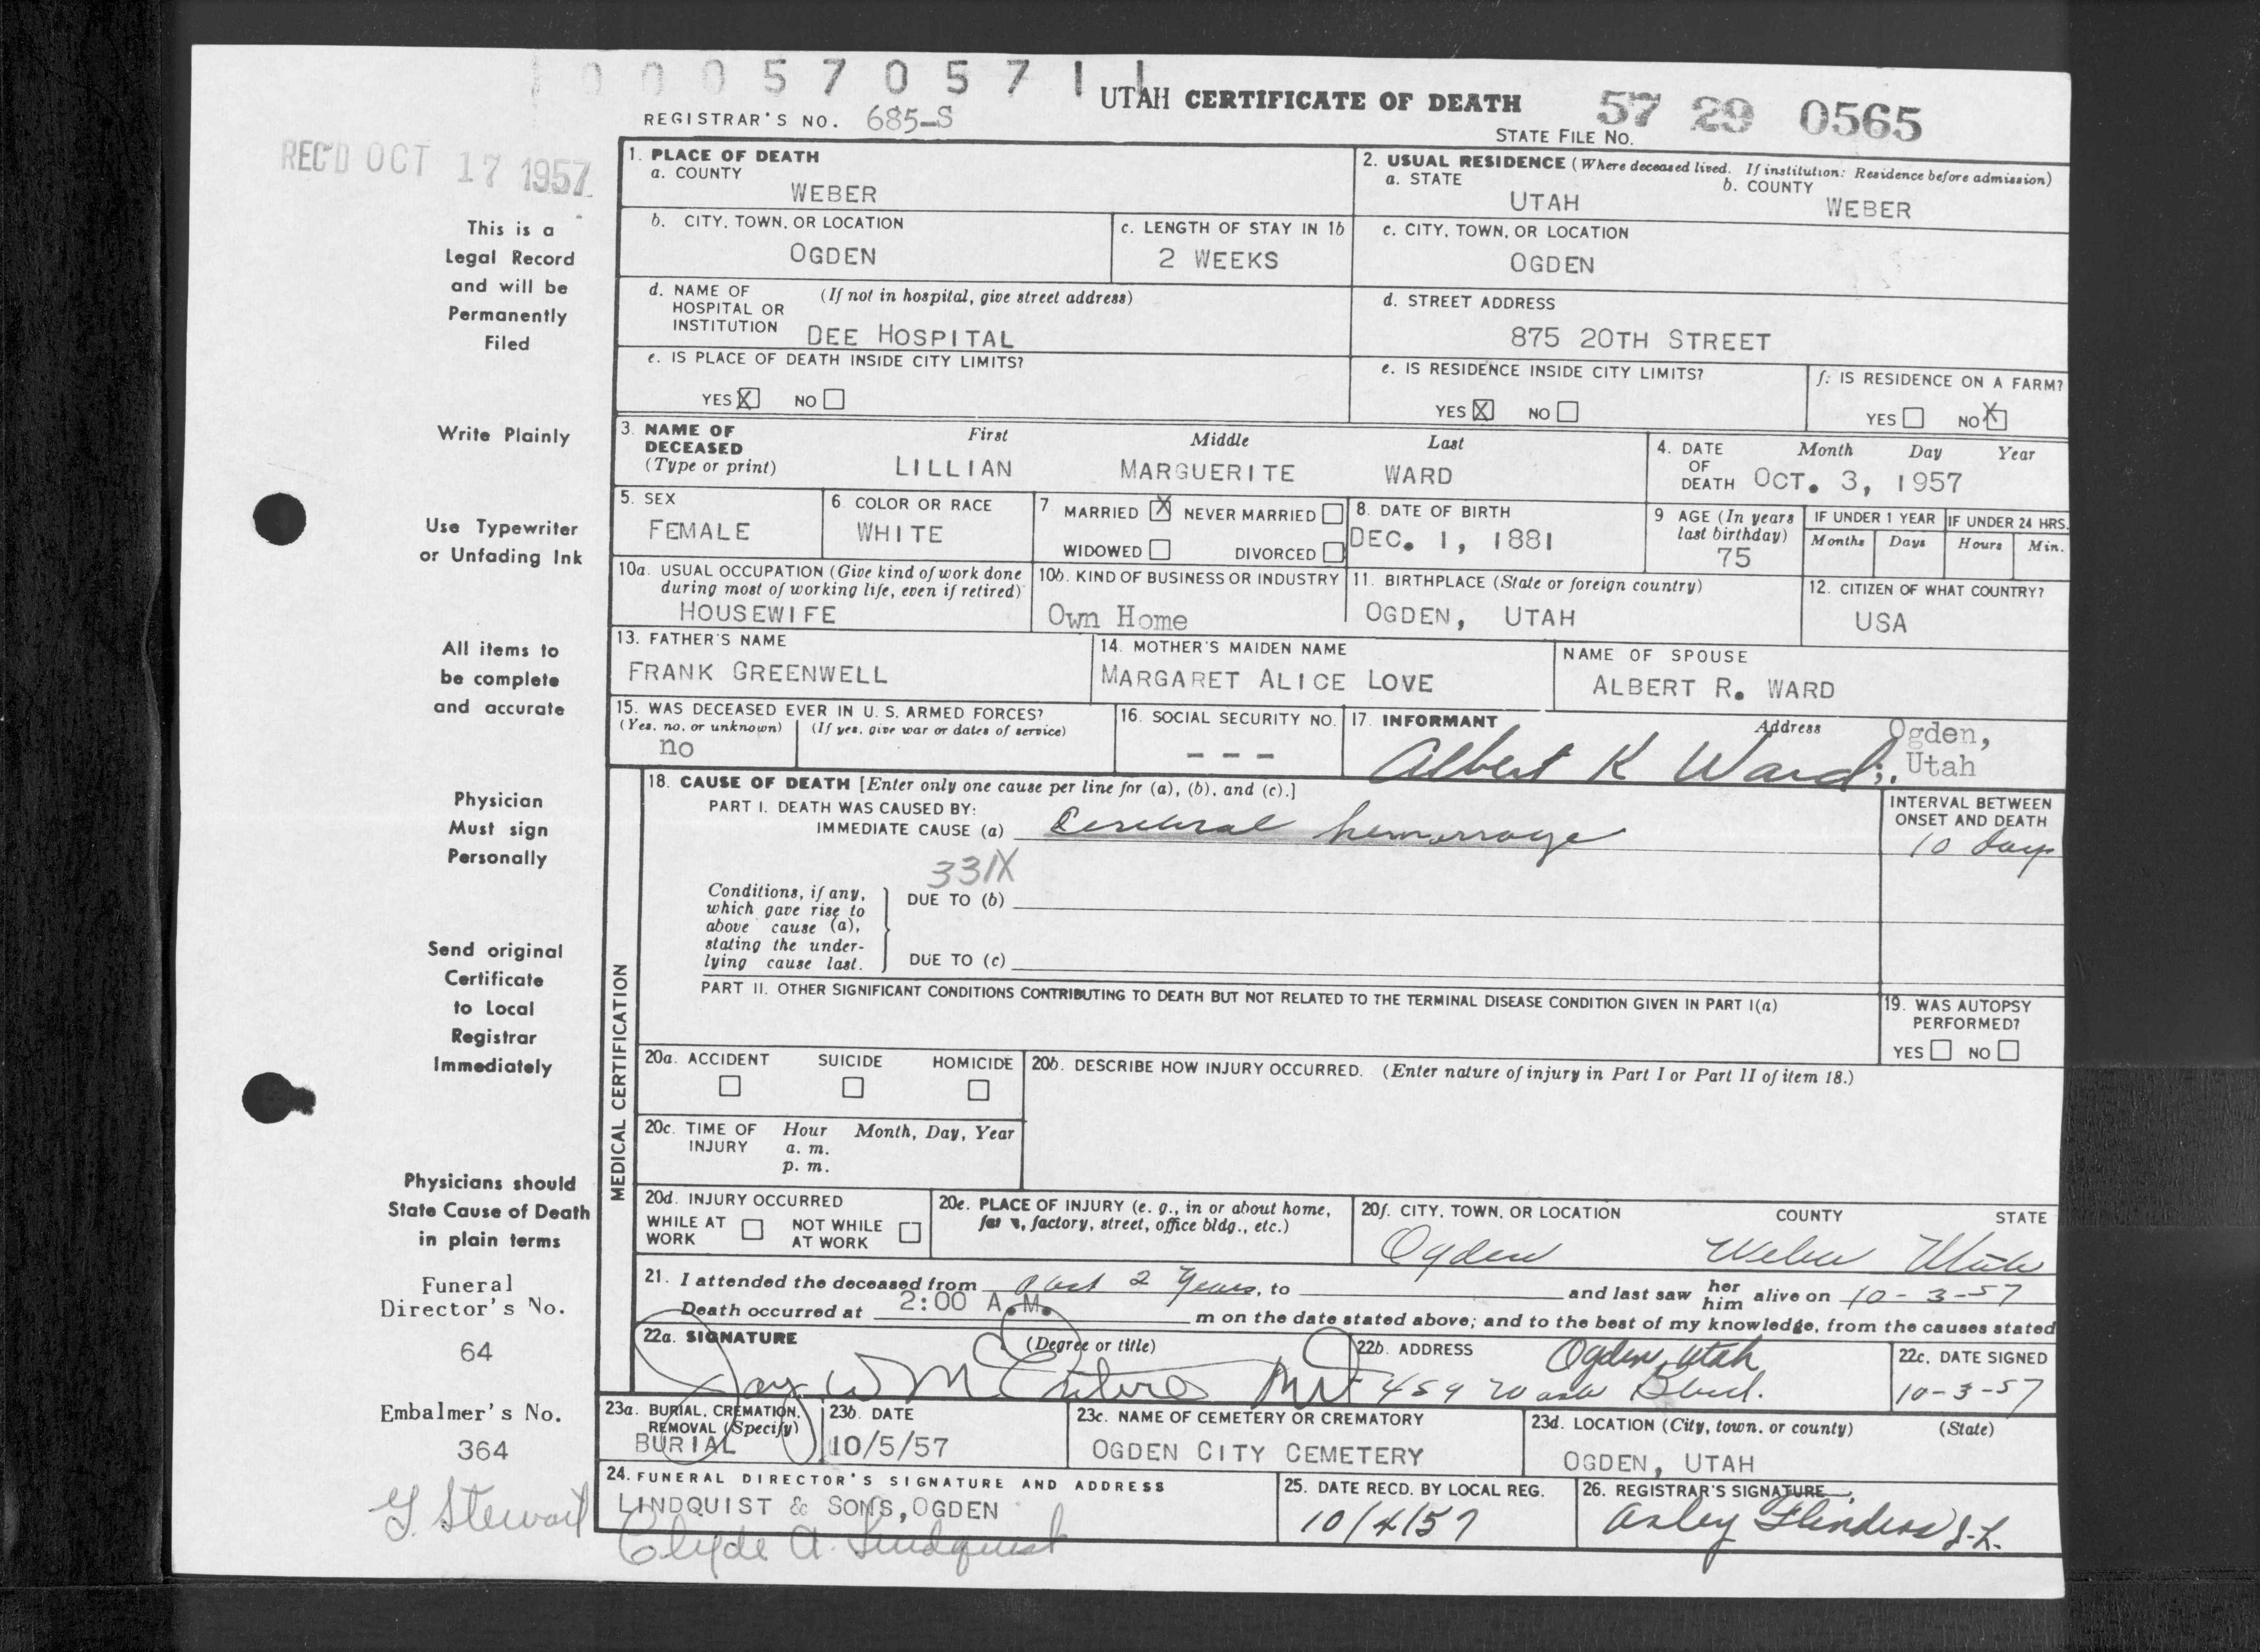 0005705711
UTAH CERTIFICATE OF DEATH
57 29 0565
REGISTRAR'S NO. 685-S
STATE FILE NO.
REC'D OCT 17 1957
This is a
Legal Record
and will be
Permanently
Filed
Write Plainly
Use Typewriter
or Unfading Ink
All items to
be complete
and accurate
Physician
Must sign
Personally
Send original
Certificate
to Local
Registrar
Immediately
Physicians should
State Cause of Death
in plain terms
Funeral
Director's No.
64
Embalmer's No.
364
G. Stewart
1. PLACE OF DEATH
a. COUNTY
WEBER
2. USUAL RESIDENCE (Where deceased lived. If institution: Residence before admission)
a. STATE b. COUNTY
UTAH WEBER
b. CITY, TOWN, OR LOCATION
OGDEN
c. LENGTH OF STAY IN 1b
2 WEEKS
c. CITY, TOWN, OR LOCATION
OGDEN
d. NAME OF (If not in hospital, give street address)
HOSPITAL OR
INSTITUTION DEE HOSPITAL
d. STREET ADDRESS
875 20TH STREET
e. IS PLACE OF DEATH INSIDE CITY LIMITS?
YES X NO
e. IS RESIDENCE INSIDE CITY LIMITS?
YES X NO
f. IS RESIDENCE ON A FARM?
YES NO X
3. NAME OF First Middle Last
DECEASED
(Type or print) LILLIAN MARGUERITE WARD
4. DATE Month Day Year
OF
DEATH OCT. 3, 1957
5. SEX
FEMALE
6. COLOR OR RACE
WHITE
7 MARRIED X NEVER MARRIED
WIDOWED DIVORCED
8. DATE OF BIRTH
DEC. 1, 1881
9 AGE (In years
last birthday)
75
IF UNDER 1 YEAR IF UNDER 24 HRS.
Months Days Hours Min.
10a. USUAL OCCUPATION (Give kind of work done
during most of working life, even if retired)
HOUSEWIFE
10b. KIND OF BUSINESS OR INDUSTRY
Own Home
11. BIRTHPLACE (State or foreign country)
OGDEN, UTAH
12. CITIZEN OF WHAT COUNTRY?
USA
13. FATHER'S NAME
FRANK GREENWELL
14. MOTHER'S MAIDEN NAME
MARGARET ALICE LOVE
NAME OF SPOUSE
ALBERT R. WARD
15. WAS DECEASED EVER IN U. S. ARMED FORCES?
(Yes, no, or unknown) (If yes, give war or dates of service)
no
16. SOCIAL SECURITY NO.
- - -
17. INFORMANT Address
Albert R Ward; Ogden,
Utah
MEDICAL CERTIFICATION
18. CAUSE OF DEATH [Enter only one cause per line for (a), (b), and (c).]
PART I. DEATH WAS CAUSED BY:
IMMEDIATE CAUSE (a) Cerebral hemorrage
INTERVAL BETWEEN
ONSET AND DEATH
10 days
331X
Conditions, if any,
which gave rise to
above cause (a),
stating the under-
lying cause last.
DUE TO (b)
DUE TO (c)
PART II. OTHER SIGNIFICANT CONDITIONS CONTRIBUTING TO DEATH BUT NOT RELATED TO THE TERMINAL DISEASE CONDITION GIVEN IN PART I(a)
19. WAS AUTOPSY
PERFORMED?
YES NO
20a. ACCIDENT SUICIDE HOMICIDE
20b. DESCRIBE HOW INJURY OCCURRED. (Enter nature of injury in Part I or Part II of item 18.)
20c. TIME OF Hour Month, Day, Year
INJURY a. m.
p. m.
20d. INJURY OCCURRED
WHILE AT NOT WHILE
WORK AT WORK
20e. PLACE OF INJURY (e. g., in or about home,
factory, street, office bldg., etc.)
20f. CITY, TOWN, OR LOCATION COUNTY STATE
Ogden Weber Utah
21. I attended the deceased from Past 2 Years, to and last saw her him alive on 10-3-57
Death occurred at 2:00 A.M. m on the date stated above; and to the best of my knowledge, from the causes stated
22a. SIGNATURE (Degree or title)
Jay W McEntire MD
22b. ADDRESS
Ogden, Utah
459 Wash Blvd.
22c. DATE SIGNED
10-3-57
23a. BURIAL, CREMATION,
REMOVAL (Specify)
BURIAL
23b. DATE
10/5/57
23c. NAME OF CEMETERY OR CREMATORY
OGDEN CITY CEMETERY
23d. LOCATION (City, town, or county) (State)
OGDEN, UTAH
24. FUNERAL DIRECTOR'S SIGNATURE AND ADDRESS
LINDQUIST & SONS, OGDEN
Clyde A. Lindquist
25. DATE RECD. BY LOCAL REG.
10/4/57
26. REGISTRAR'S SIGNATURE
Flinders